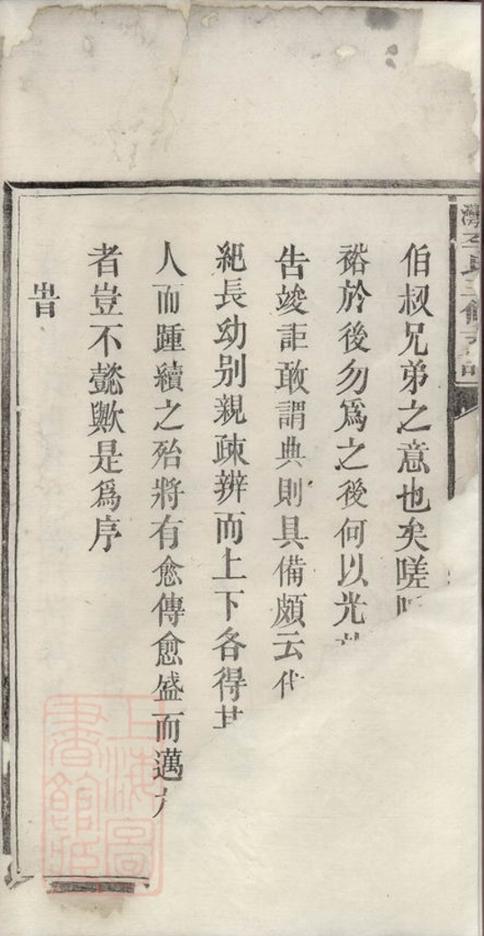 李氏三修
伯叔兄弟之意也矣嗟
裕於後勿為之後何以光
告竣詎敢謂典則具備頗云代
紀長幼别親疎辨而上下各得其
人而踵續之殆將有愈傳愈盛而邁
者豈不懿歟是為序
旹
上海圖書館藏